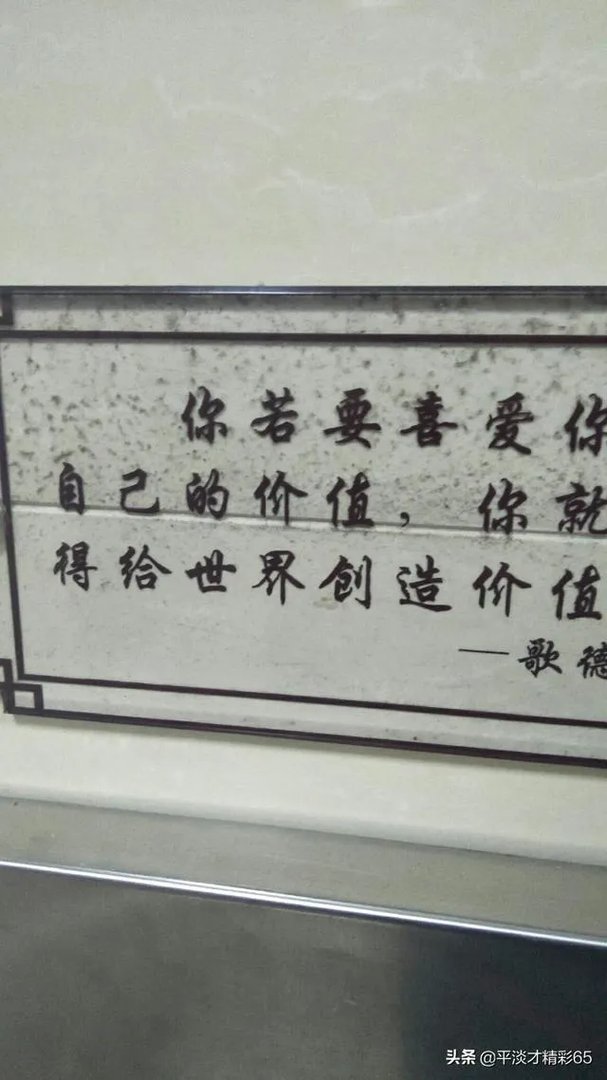 你若要喜爱你
自己的价值，你就
得给世界创造价值
——歌德
头条 @平淡才精彩65